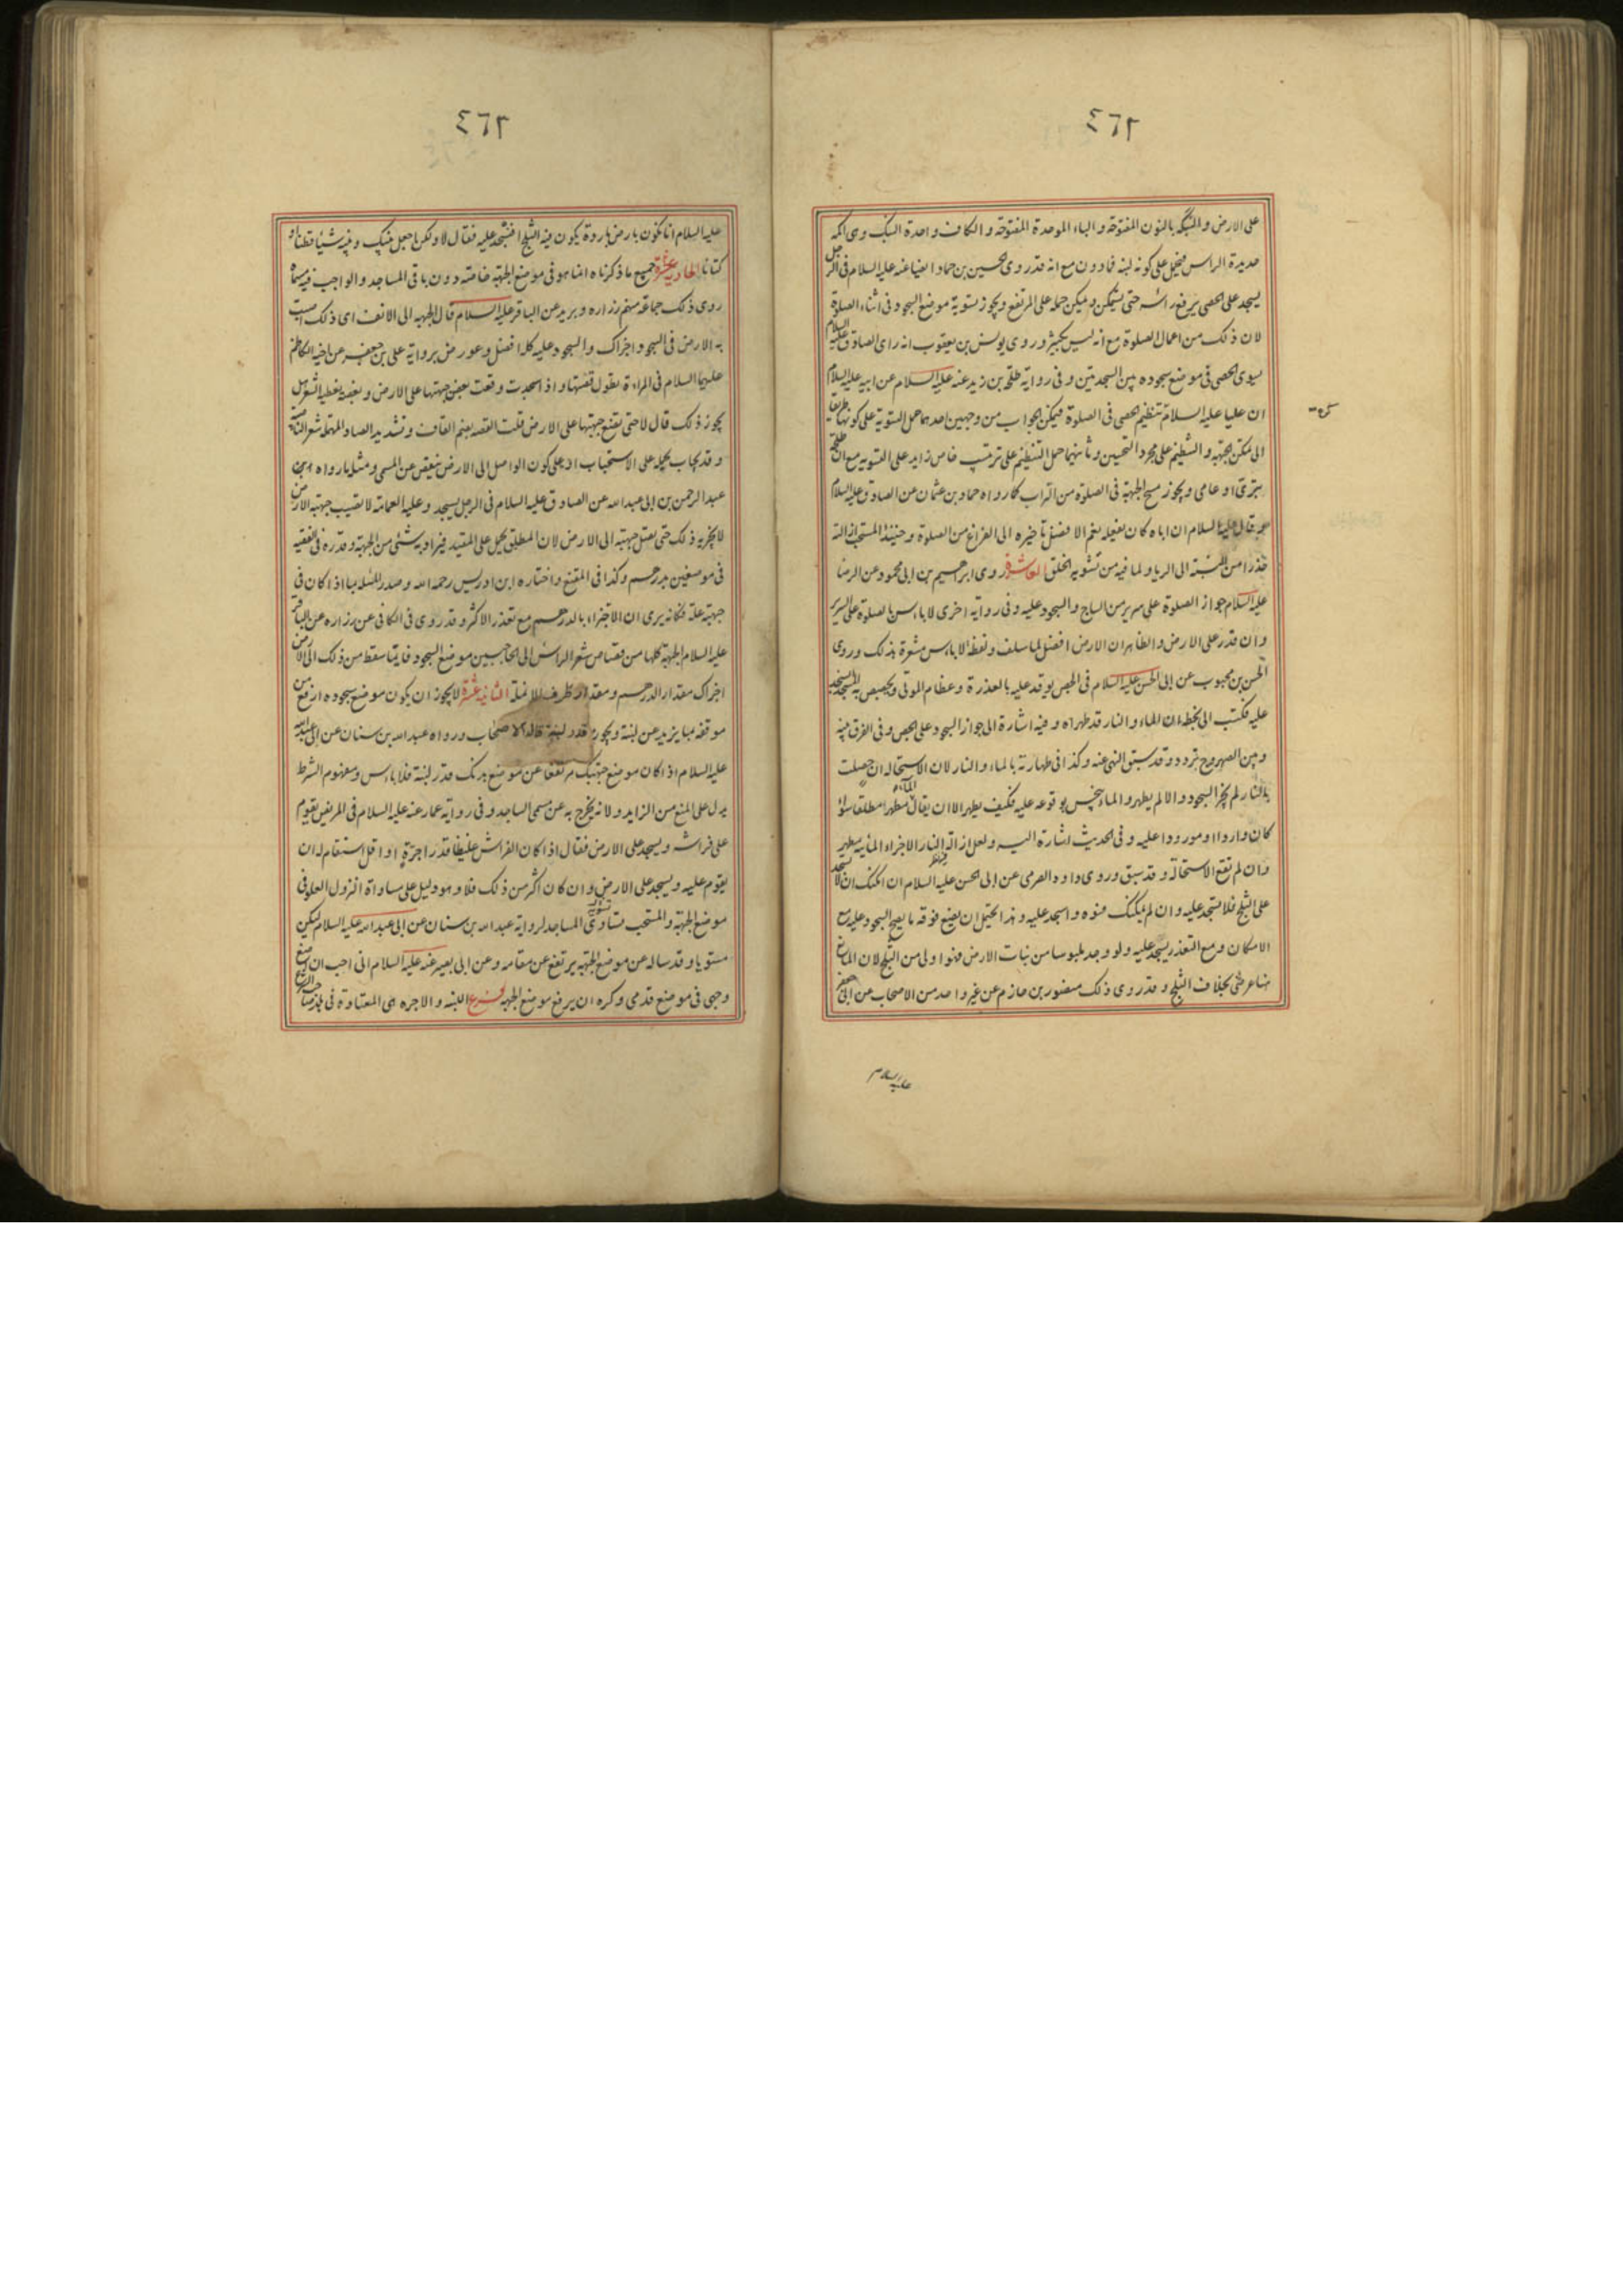 ٤٦٢
على الارض والنبكة بالنون المفتوحة والباء الموحدة المفتوحة والكاف واحدة النبك وهى اكمة
حديدة الراس فيحمل على كونه لبنة فمادون مع انه قد روى الحسين بن حماد ايضا عنه عليه السلام فى الرجل
يسجد على الحصى يرفع راسه حتى يتمكن ويمكن حمله على المرتفع ويجوز تسوية موضع السجود فى اثناء الصلوة
لان ذلك من اعمال الصلوة مع انه ليس بكثير وروى يونس بن يعقوب انه راى الصادق عليه السلام
يسوى الحصى فى موضع سجوده بين السجدتين وفى رواية طلحة بن زيد عنه عليه السلام عن ابيه عليه السلام
ان عليا عليه السلام تنظيم الحصى فى الصلوة فيمكن الجواب من وجهين احدهما حمل التسوية على كونها طريقا
الى تمكن الجبهة والتنظيم على مجرد التحسين وثانيهما حمل التنظيم على ترتيب خاص زايد على التسوية مع ان طلحة
بترى او عامى ويجوز مسح الجبهة فى الصلوة من التراب كما رواه حماد بن عثمان عن الصادق عليه السلام
قال عليه السلام ان اباه كان يفعله نعم الافضل تاخيره الى الفراغ من الصلوة وحينئذ المستحب ازالته
حذرا من النسبة الى الريا ولما فيه من تشويه الخلق العاشرة روى ابراهيم بن ابى محمود عن الرضا
عليه السلام جواز الصلوة على سرير من الساج والسجود عليه وفى رواية اخرى لا باس بالصلوة على السرير
وان قدر على الارض والظاهر ان الارض افضل لما سلف ولفظ لا باس مشعرة بذلك وروى
الحسن بن محبوب عن ابى الحسن عليه السلام فى الجص يوقد عليه بالعذرة وعظام الموتى ويجصص به المسجد ايسجد
عليه فكتب الى بخطه ان الماء والنار قد طهراه وفيه اشارة الى جواز السجود على الجص وفى الفرق بينه
وبين الصهروج تردد وقد سبق النهى عنه وكذا فى طهارته بالماء والنار لان الاستحالة ان حصلت
بالنار لم يجز السجود والا لم يطهر والماء ينجس بوقوعه عليه فكيف يطهر الا ان يقال الماء مطهر مطلقا سواء
كان واردا او مورودا عليه وفى الحديث اشارة اليه ولعل ازالة النار الاجزاء المائية مطهر
وان لم تقع الاستحالة وقد سبق وروى داود الصرمى عن ابى الحسن عليه السلام ان امكنك ان لا تسجد
على الثلج فلا تسجد عليه وان لم يمكنك فسوه واسجد عليه وهذا يحتمل ان يضع فوقه ما يصح السجود عليه مع
الامكان ومع التعذر يسجد عليه ولو وجد ملبوسا من نبات الارض فهو اولى من الثلج لان المانع
هنا عرضى بخلاف الثلج وقد روى ذلك منصور بن حازم عن غير واحد من الاصحاب عن ابى جعفر
عليه السلام
٤٦٢
عليه السلام انا نكون بارض باردة يكون فيه الثلج افنسجد عليه فقال لا ولكن اجعل بينك وبينه شيئا قطنا او
كتانا الحادية عشرة جميع ما ذكرناه انما هو فى موضع الجبهة خاصة دون باقى المساجد والواجب فيه مسماه
روى ذلك جماعة منهم زرارة وبريد عن الباقر عليه السلام قال الجبهة الى الانف اى ذلك اصبت
به الارض فى السجود اجزاك والسجود عليه كله افضل وعورض برواية على بن جعفر عن اخيه الكاظم
عليهما السلام فى المراة تطول قصتها واذا سجدت وقعت بعض جبهتها على الارض وبعض يغطيه الشعر هل
يجوز ذلك قال لا حتى تضع جبهتها على الارض قلت القصة بضم القاف وتشديد الصاد المهملة شعر الناصية
وقد يجاب بحمله على الاستحباب او على كون الواصل الى الارض ينقص عن المسمى ومثله ما رواه
عبد الرحمن بن ابى عبد الله عن الصادق عليه السلام فى الرجل يسجد وعليه العمامة لا تصيب جبهته الارض
لا يجزيه ذلك حتى تصل جبهته الى الارض لان المطلق يحمل على المقيد فيراد به شىء من الجبهة وقدره فى الفقيه
فى موضعين بدرهم وكذا فى المقنع واختاره ابن ادريس رحمه الله وصدر المسئلة بما اذا كان فى
جبهته علة فكانه يرى ان الاجتزاء بالدرهم مع تعذر الاكثر وقد روى فى الكافى عن زرارة عن الباقر
عليه السلام الجبهة كلها من قصاص شعر الراس الى الحاجبين موضع السجود فايما سقط من ذلك الى الارض
اجزاك مقدار الدرهم ومقدار طرف الانملة الثانية عشرة لا يجوز ان يكون موضع سجوده ارفع من
موقفه بما يزيد عن لبنة ويجوز قدر لبنة قاله الاصحاب ورواه عبد الله بن سنان عن ابى عبد الله
عليه السلام اذا كان موضع جبهتك مرتفعا عن موضع بدنك قدر لبنة فلا باس ومفهوم الشرط
يدل على المنع من الزايد ولانه يخرج به عن مسمى الساجد وفى رواية عمار عنه عليه السلام فى المريض يقوم
على فراشه ويسجد على الارض فقال اذا كان الفراش غليظا قدر اجرة او اقل استقام له ان
يقوم عليه ويسجد على الارض وان كان اكثر من ذلك فلا وهو دليل على مساواة النزول العلو فى
موضع الجبهة والمستحب تساوى المساجد لرواية عبد الله بن سنان عن ابى عبد الله عليه السلام ليكن
مستويا وقد ساله عن موضع الجبهة يرتفع عن مقامه وعن ابى بصير عنه عليه السلام انى احب ان اضع
وجهى فى موضع قدمى وكره ان يرفع موضع الجبهة فرع اللبنة والاجرة هى المعتادة فى